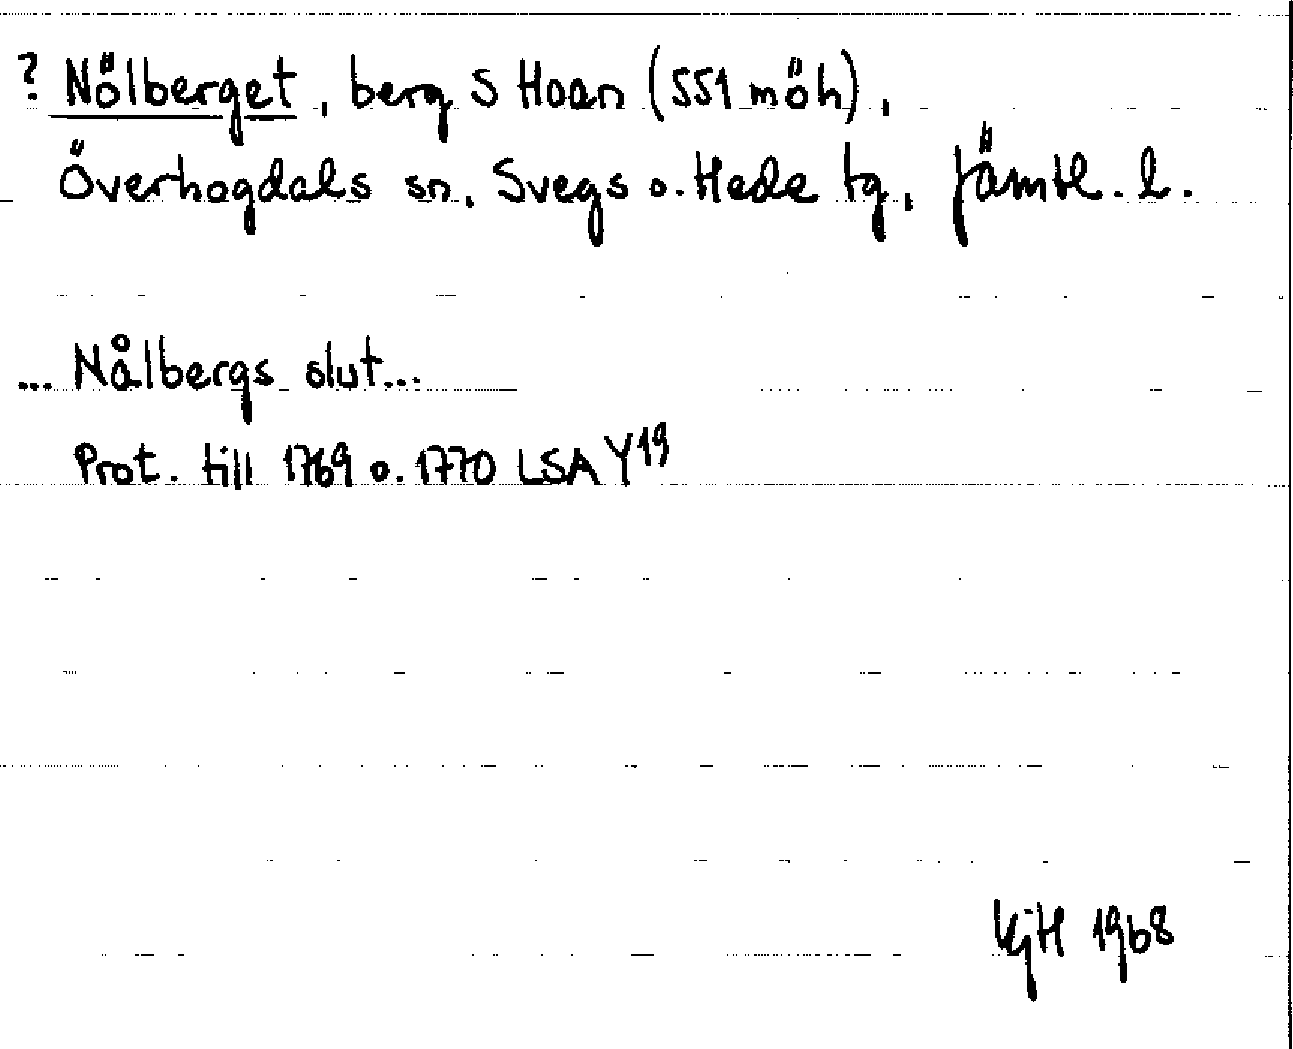 ? Nölberget, berg S Hoan (551 möh),
Överhogdals sn, Svegs o. Hede tg, Jämtl. l.
... Nålbergs slut...
Prot. till 1769 o. 1770 LSA Y19
KjH 1968